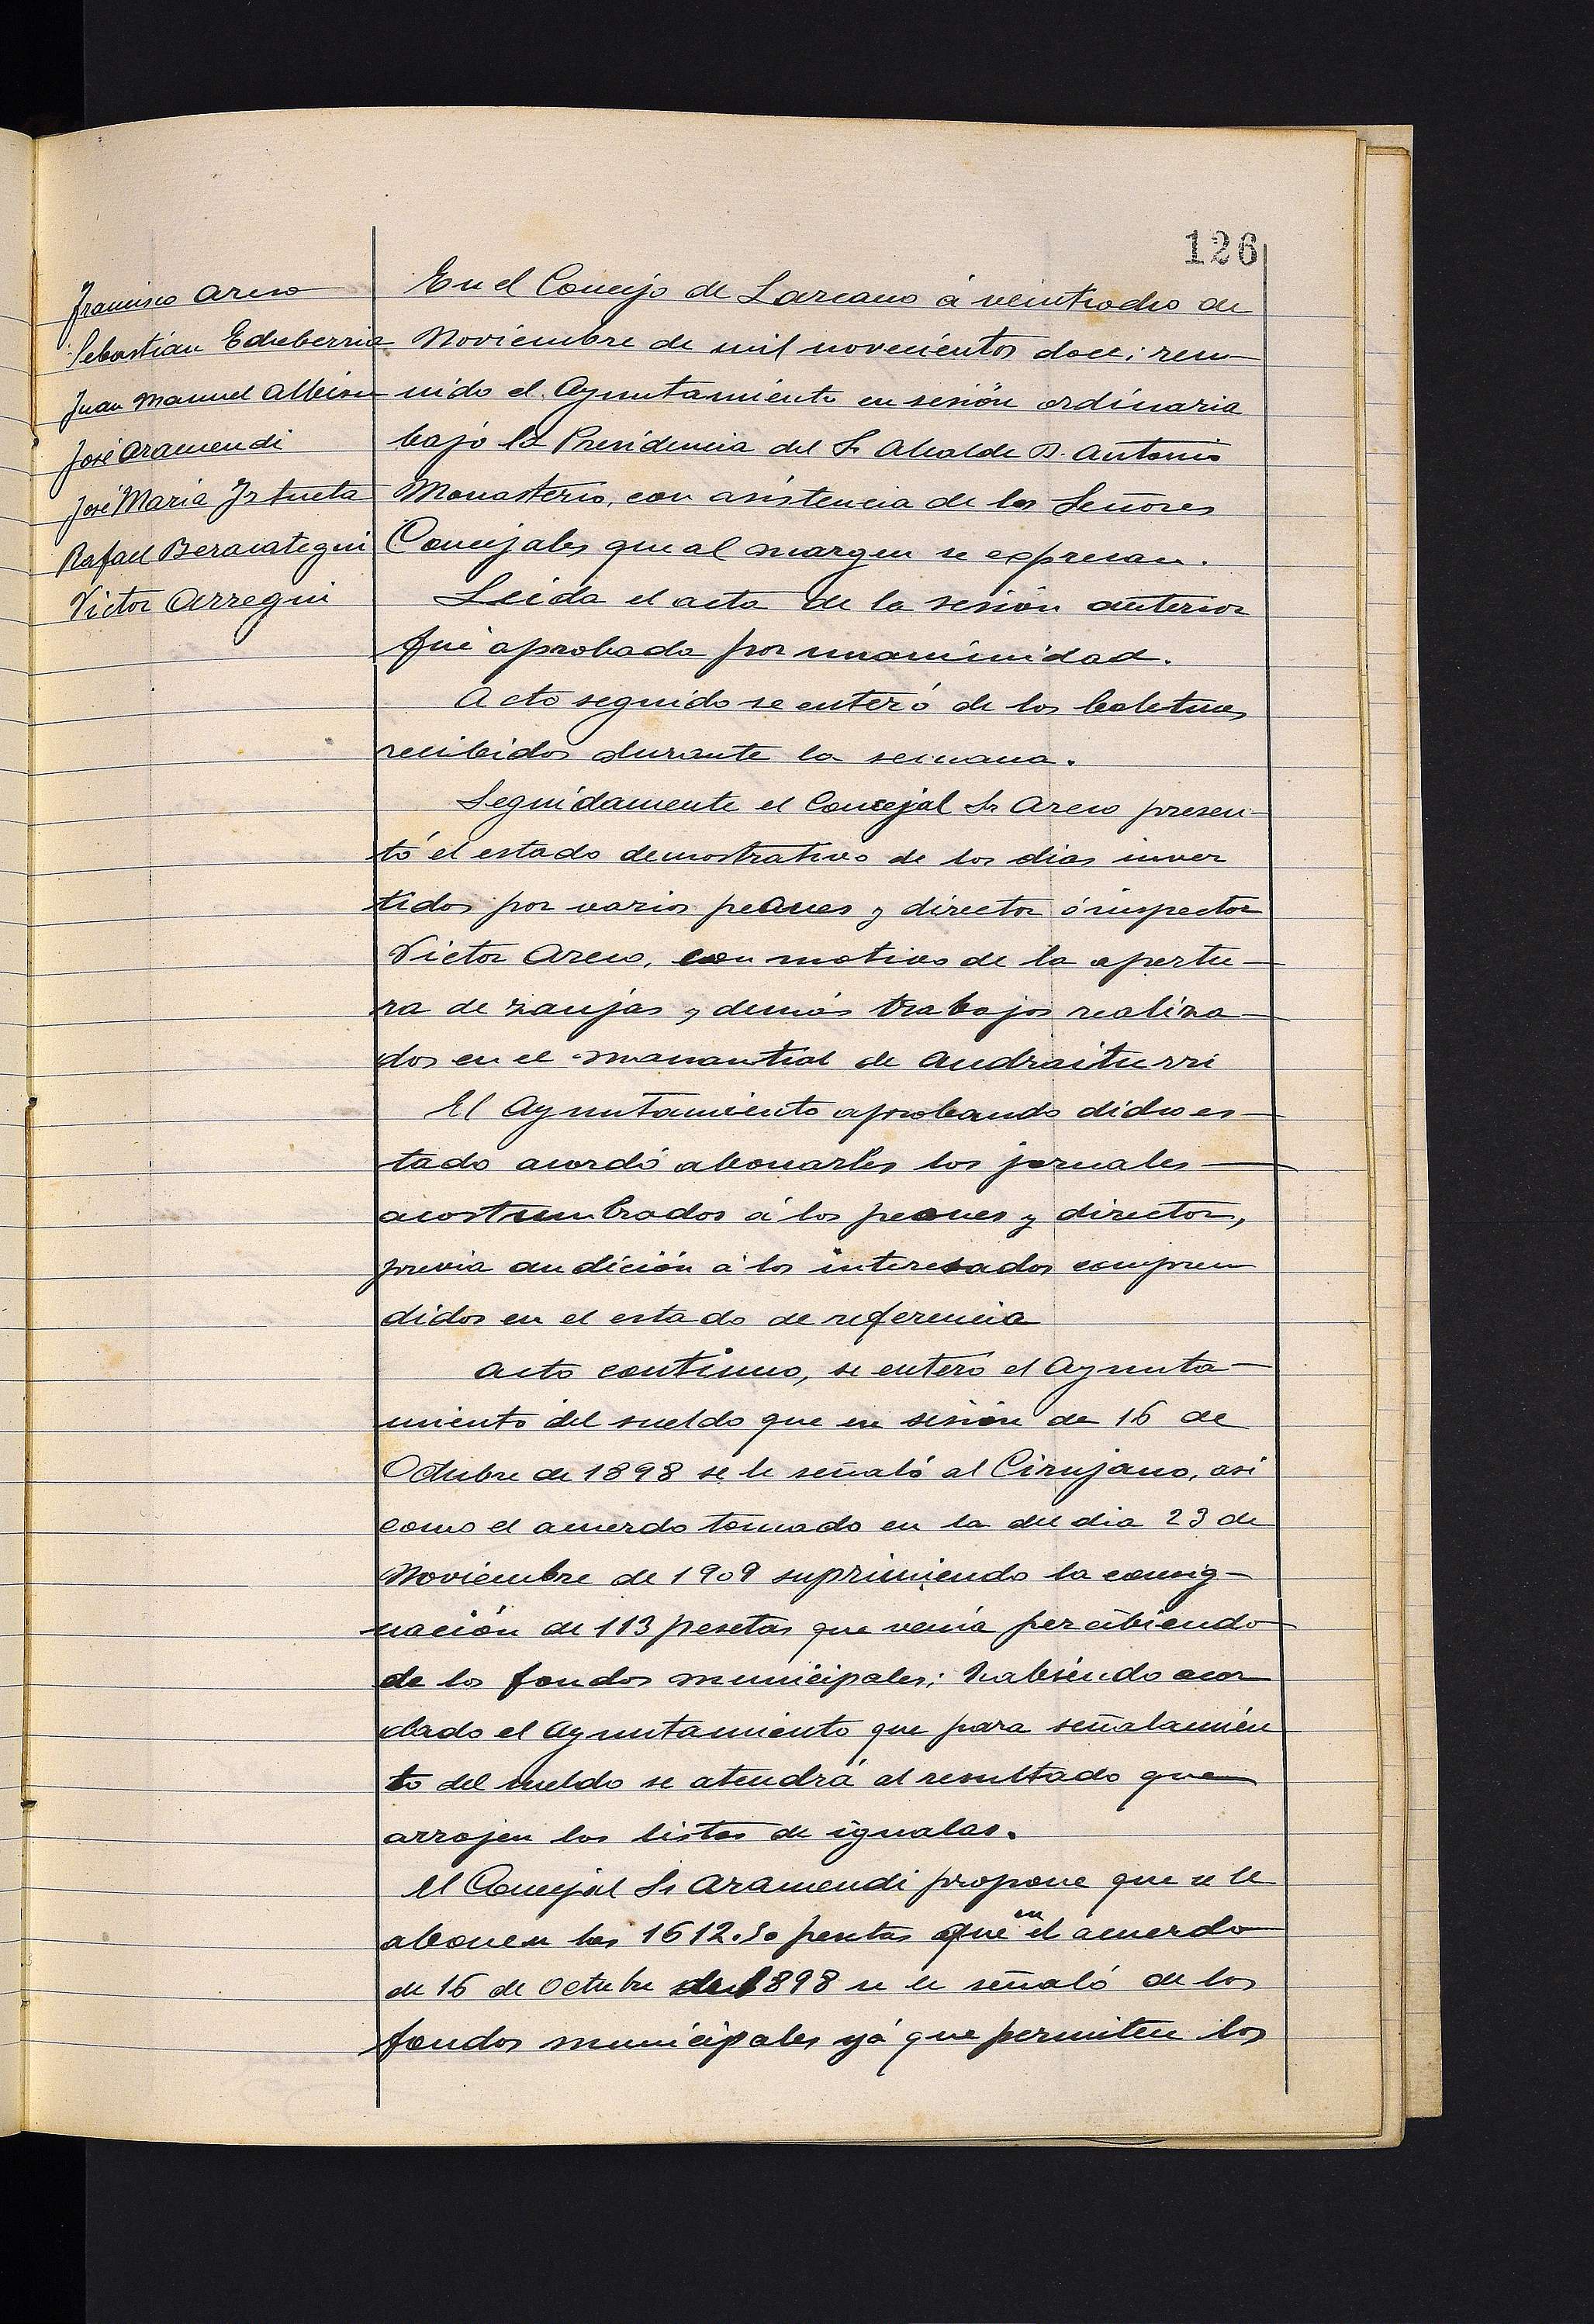 126
Francisco Areso
Sebastián Echeberria
Juan Manuel Albisu
José Aramendi
José Maria Iztueta
Rafael Berasategui
Victor Arregui
En el Concejo de Lazcano á veintiocho de
Noviembre de mil novecientos doce; reu-
nido el Ayuntamiento en sesión ordinaria
bajo la Presidencia del Sr Alcalde D. Antonio
Monasterio, con asistencia de los Señores
Concejales que al margen se expresan.
Leida el acta de la sesión anterior
fué aprobada por unanimidad.
Acto seguido se enteró de los boletines
recibidos durante la semana.
Seguidamente el Concejal Sr Areso presen-
tó el estado demostrativo de los dias inver
tidos por varios peones y director ó inspector
Victor Areso, con motivo de la apertu-
ra de zanjas y demás trabajos realiza-
dos en el manantial de Andraiturri
El Ayuntamiento aprobando dicho es-
tado acordó abonarles los jornales
acostumbrados á los peones y director,
previa audición á los interesados compren
didos en el estado de referencia
Acto continuo, se enteró el Ayunta-
miento del sueldo que en sesión de 16 de
Octubre de 1898 se le señaló al Cirujano, asi
como el acuerdo tomado en la del dia 23 de
Noviembre de 1909 suprimiendo la consig-
nación de 113 pesetas que venia percibiendo
de los fondos municipales; habiendo acor
dado el Ayuntamiento que para señalamien
to del sueldo se atendrá al resultado que
arrojen las listas de igualas.
El Concejal Sr Aramendi propone que se le
abonen las 1612.50 pesetas que en el acuerdo
de 16 de Octubre de 1898 se le señaló de los
fondos municipales yá que permiten los